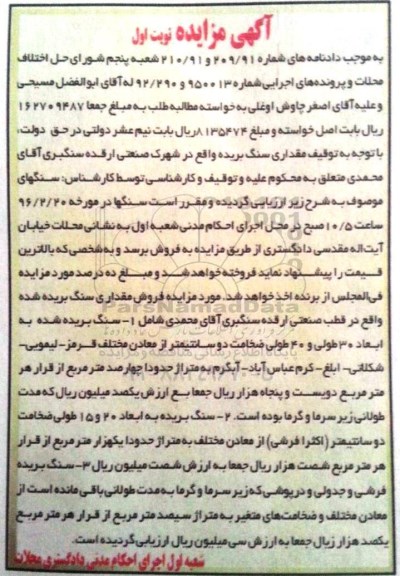 آگهی مزایده نوبت اول
به موجب دادنامه های شماره ۲۰۹/۹۱ و ۲۱۰/۹۱ شعبه پنجم شورای حل اختلاف
محلات و پرونده‌های اجرایی شماره ۹۵۰۰۱۳ و ۹۲/۲۹۰ له آقای ابوالفضل مسیحی
و علیه آقای اصغر چاوش اوغلی به خواسته مطالبه طلب به مبلغ جمعا ۱۶۲۷۰۹۴۸۷
ریال بابت اصل خواسته و مبلغ ۸۱۳۵۴۷۴ ریال بابت نیم عشر دولتی در حق دولت،
با توجه به توقیف مقداری سنگ بریده واقع در شهرک صنعتی ارقده سنگبری آقای
محمدی متعلق به محکوم علیه و توقیف و کارشناسی توسط کارشناس: سنگهای
موصوف به شرح زیر ارزیابی گردیده و مقرر است سنگها در مورخه ۹۶/۲/۲۰
ساعت ۱۰/۵ صبح در محل اجرای احکام مدنی شعبه اول به نشانی محلات خیابان
آیت‌اله مقدسی دادگستری از طریق مزایده به فروش برسد و به شخصی که بالاترین
قیمت را پیشنهاد نماید فروخته خواهد شد و مبلغ ده درصد مورد مزایده
فی‌المجلس از برنده اخذ خواهد شد. مورد مزایده فروش مقداری سنگ بریده شده
واقع در قطب صنعتی ارقده سنگبری آقای محمدی شامل ۱- سنگ بریده شده به
ابعاد ۳۰ طولی و ۴۰ طولی ضخامت دو سانتیمتر از معادن مختلف قرمز-لیمویی-
شکلاتی- ابلغ-کرم عباس آباد-آبگرم به متراژ حدودا چهارصد متر مربع از قرار هر
متر مربع دویست و پنجاه هزار ریال جمعا به ارزش یکصد میلیون ریال که مدت
طولانی زیر سرما و گرما بوده است. ۲- سنگ بریده به ابعاد ۲۰ و ۱۵ طولی ضخامت
دو سانتیمتر (اکثرا فرشی) از معادن مختلف به متراژ حدودا یکهزار متر مربع از قرار
هر متر مربع شصت هزار ریال جمعا به ارزش شصت میلیون ریال ۳-سنگ بریده
فرشی و جدولی و درپوشی که زیر سرما و گرما به مدت طولانی باقی مانده است از
معادن مختلف و ضخامت‌های متغیر به متراژ سیصد متر مربع از قرار هر متر مربع
یکصد هزار ریال جمعا به ارزش سی میلیون ریال ارزیابی گردیده است.
شعبه اول اجرای احکام مدنی دادگستری محلات
ParsNamadData
پایگاه اطلاع رسانی مناقصه و مزایده